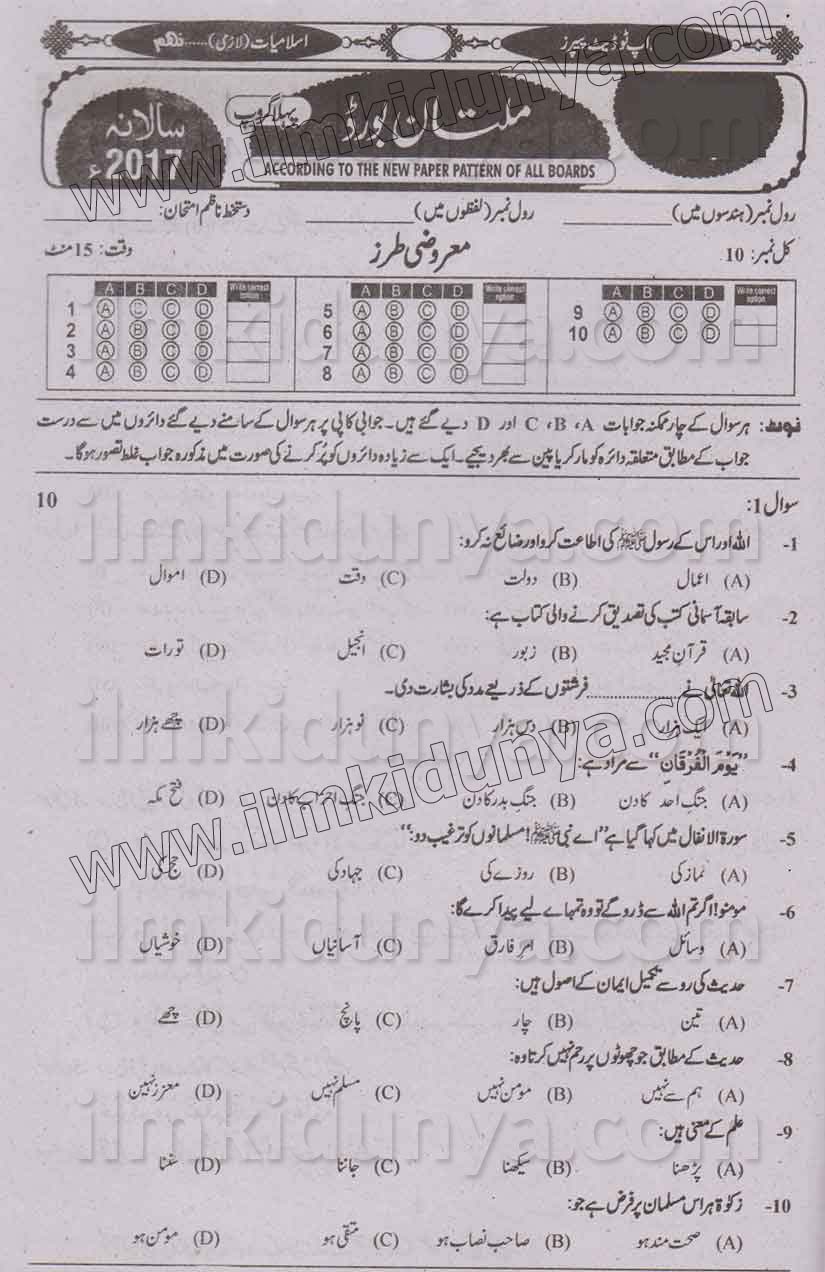 اپ ٹو ڈیٹ پیپرز
اسلامیات (لازمی)......نہم
ملتان بورڈ
پہلا گروپ
سالانہ
2017ء
ACCORDING TO THE NEW PAPER PATTERN OF ALL BOARDS
www.ilmkidunya.com
رول نمبر (ہندسوں میں) __________ رول نمبر (لفظوں میں) __________ دستخط ناظم امتحان: __________
کل نمبر: 10 معروضی طرز وقت: 15 منٹ
A B C D Write correct option
1 A B C D
2 A B C D
3 A B C D
4 A B C D
A B C D Write correct option
5 A B C D
6 A B C D
7 A B C D
8 A B C D
A B C D Write correct option
9 A B C D
10 A B C D
ilmkidunya.com
نوٹ: ہر سوال کے چار ممکنہ جوابات A، B، C اور D دیے گئے ہیں۔ جوابی کاپی پر ہر سوال کے سامنے دیے گئے دائروں میں سے درست
جواب کے مطابق متعلقہ دائرہ کو مارکر یا پین سے بھر دیجیے۔ ایک سے زیادہ دائروں کو پُر کرنے کی صورت میں مذکورہ جواب غلط تصور ہوگا۔
سوال 1: 10
ilmkidunya.com
1- اللہ اور اس کے رسول ﷺ کی اطاعت کرو اور ضائع نہ کرو:
(A) اعمال (B) دولت (C) وقت (D) اموال
2- سابقہ آسمانی کتب کی تصدیق کرنے والی کتاب ہے:
(A) قرآن مجید (B) زبور (C) انجیل (D) تورات
3- اللہ تعالیٰ نے..............فرشتوں کے ذریعے مدد کی بشارت دی۔
(A) ایک ہزار (B) دس ہزار (C) نو ہزار (D) چھے ہزار
ilmkidunya.com
www.ilmkidunya.com
4- ’’یَوْمَ الْفُرْقَانِ‘‘ سے مراد ہے:
(A) جنگِ احد کا دن (B) جنگِ بدر کا دن (C) جنگِ احزاب کا دن (D) فتح مکہ
5- سورۃ الانفال میں کہا گیا ہے ’’اے نبی ﷺ! مسلمانوں کو ترغیب دو:‘‘
(A) نماز کی (B) روزے کی (C) جہاد کی (D) حج کی
6- مومنو! اگر تم اللہ سے ڈرو گے تو وہ تمہارے لیے پیدا کرے گا:
(A) وسائل (B) امرِ فارق (C) آسانیاں (D) خوشیاں
ilmkidunya.com
7- حدیث کی رو سے تکمیل ایمان کے اصول ہیں:
(A) تین (B) چار (C) پانچ (D) چھے
8- حدیث کے مطابق جو چھوٹوں پر رحم نہیں کرتا وہ:
(A) ہم سے نہیں (B) مومن نہیں (C) مسلم نہیں (D) معزز نہیں
ilmkidunya.com
9- علم کے معنی ہیں:
(A) پڑھنا (B) سیکھنا (C) جاننا (D) سننا
10- زکوٰۃ ہر اس مسلمان پر فرض ہے جو:
(A) صحت مند ہو (B) صاحب نصاب ہو (C) متقی ہو (D) مومن ہو